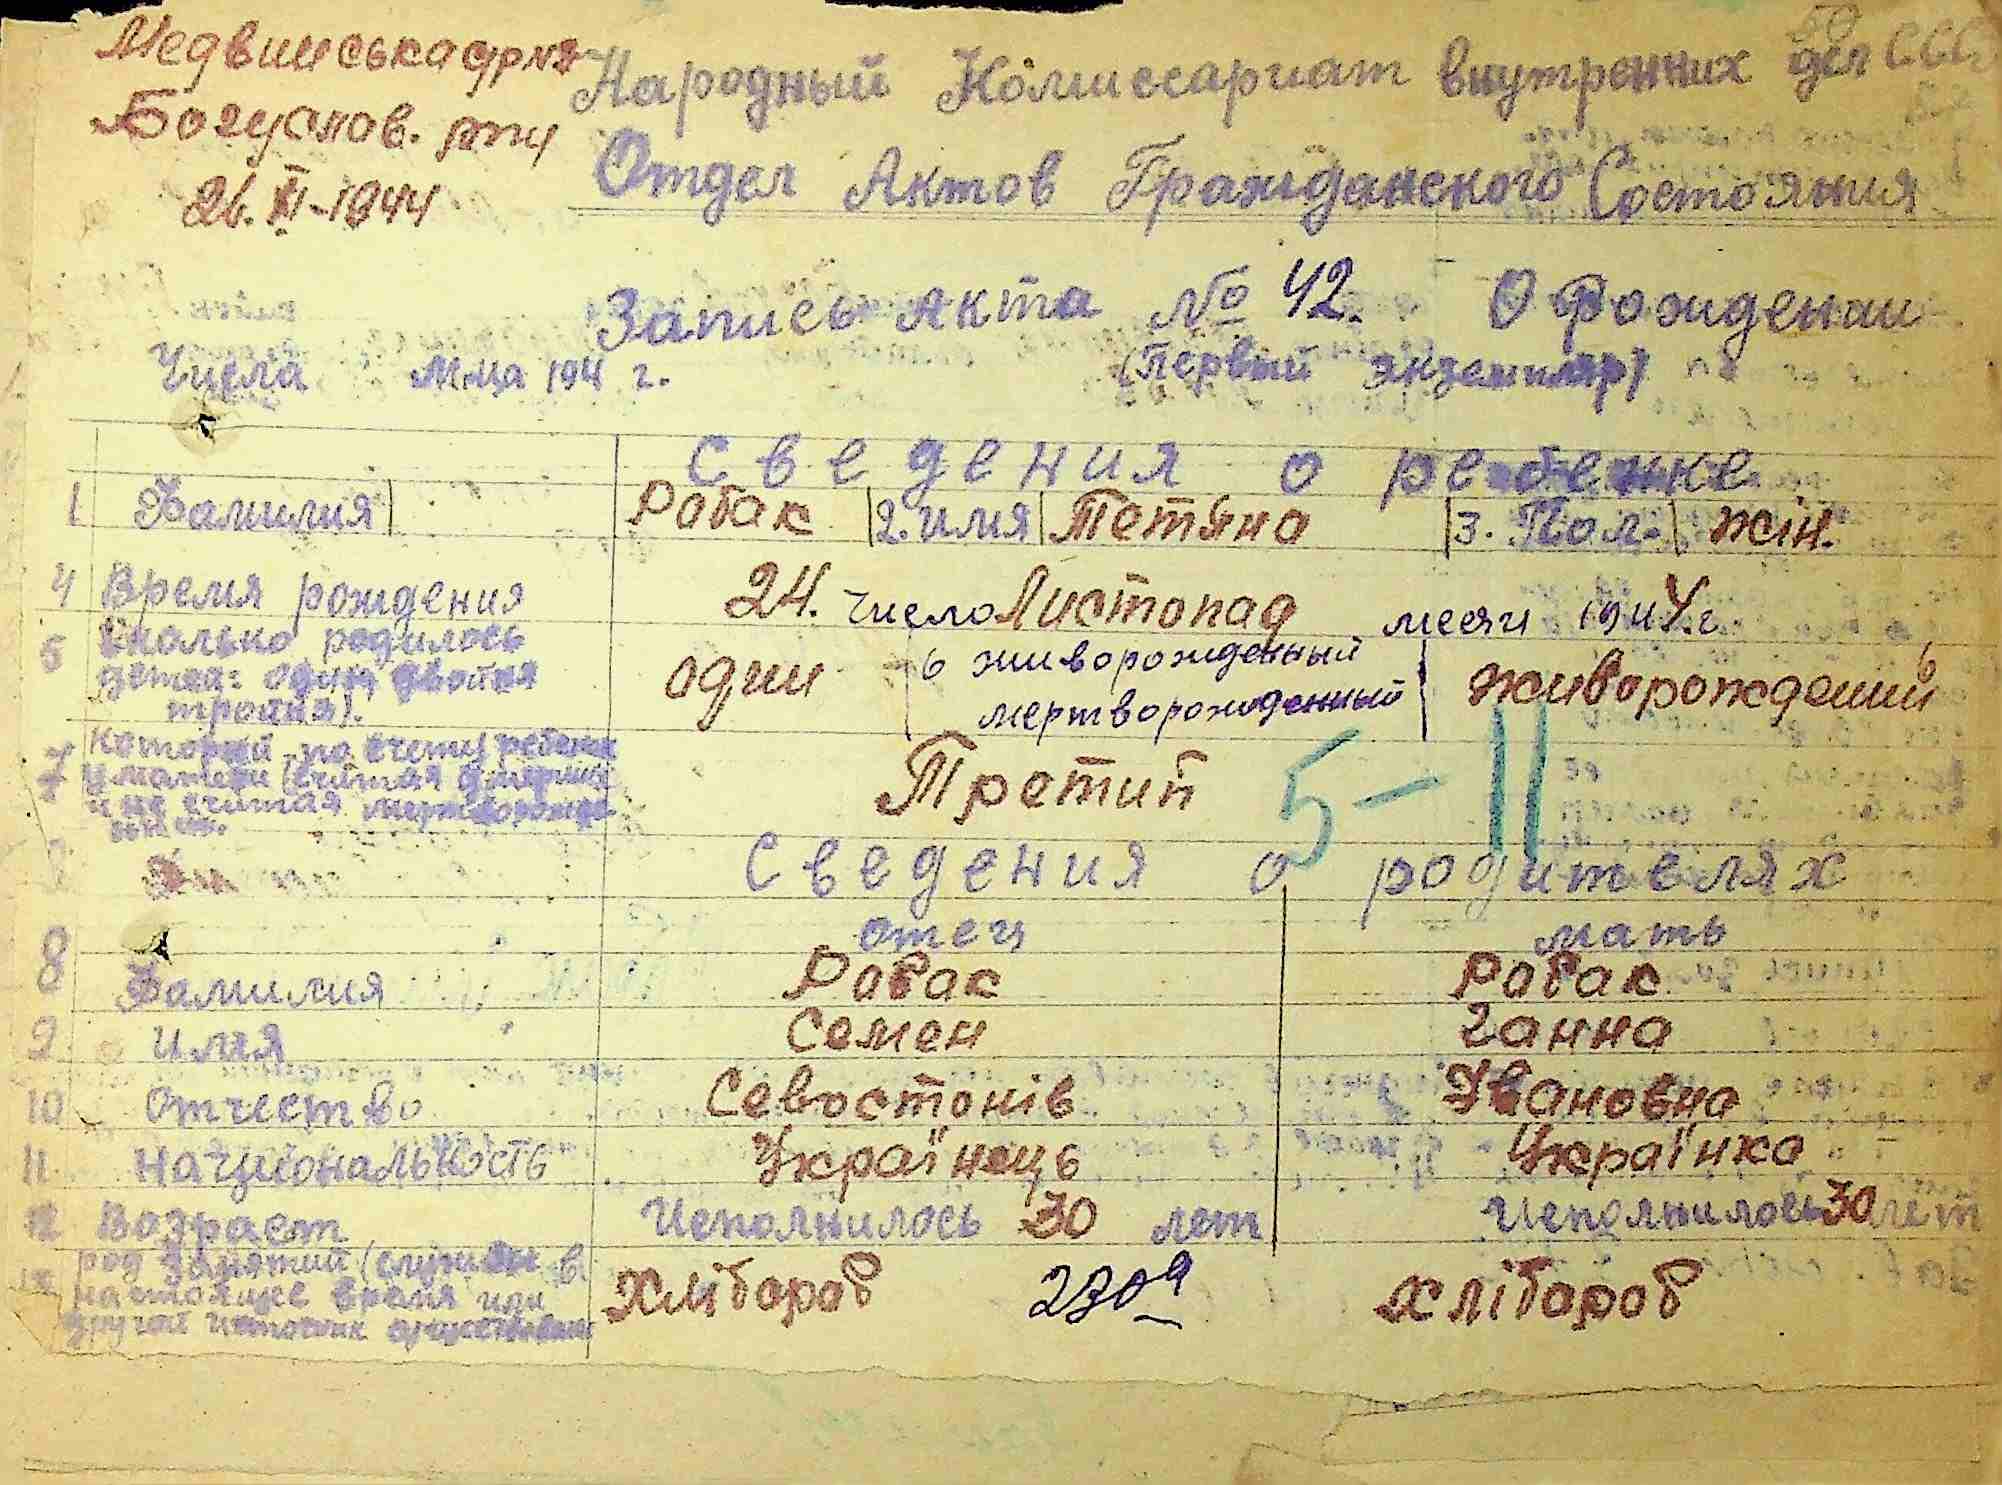 Медвинська с/р №2
Богуслов. р-ну
26. XI-1944
50
Народный Комиссариат внутренних дел СССР
Отдел Актов Гражданского Состояния
Запись Акта № 42. О Рождении
Числа М-ца 194 г. (Первый экземпляр)
Сведения о ребенке
1 Фамилия Робак 2. Имя Тетяна 3. Пол. жін.
4 Время рождения 24. число Листопад месяц 1944. г.
5 Сколько родилось один 6 живорожденный живорождений
детей: один двойня мертворожденный
тройня).
7 который по счету ребенок Третий 5-11
у матери (считая умерших
и не считая мертворожде
Сведения о родителях
отец мать
8 Фамилия Робак Робак
9 Имя Семен Ганна
10 Отчество Севостонів Івановна
11 Национальность Українець Українка
12 Возраст Исполнилось 30 лет Исполнилось 30 лет
род занятий (служит в Хлібороб Хлібороб
настоящее время или
другой источник существован